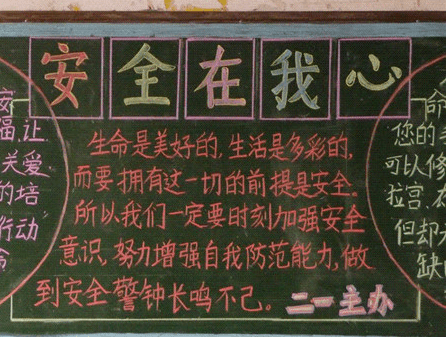 安全在我心
生命是美好的,生活是多彩的,
而要拥有这一切的前提是安全。
所以我们一定要时刻加强安全
意识,努力增强自我防范能力,做
到安全警钟长鸣不己。 二一主办
安
福,让
关爱
的培
行动
命
您的
可以修
拉宫,
但却
缺